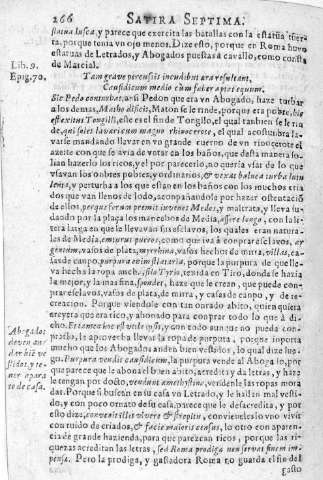 266 SATIRA SEPTIMA.
statua lusca, y parece que exercita las batallas con la estatua tuerta, porque tenia vn ojo menos. Dize esto, porque en Roma huvo
estatuas de Letrados, y Abogados puestas à cavallo, como consta
de Marcial.
Lib. 9.
Epig. 70.
Tam grave percussis incudibus æra resultant,
Causidicum medio cùm faber aptat equum.
Sic Pedo conturbat, assi Pedon que era vn Abogado, haze turbar
a los demas, Matho deficit, Maton se le rinde, porque era pobre, hic
est exitus Tongilli, este es el fin de Tongilo, el qual tambien se le rinde,
qui solet lavari cum magno rhinocerote, el qual acostumbra lavarse
mandando llevar en vn grande cuerno de vn rinocerote el
azeite con que se avia de votar en los baños, que desta manera solian
hazerlo los ricos, y el por parecerlo, no queria vsar de lo que
vsavan los onbres pobles, y ordinarios, & vexat balnea turba lutulenta,
y perturba a los que estan en los baños con los muchos criados
que van llenos de lodo, acompañandole por hazer ostentacion
de ellos, perque forum premit iuvenes Medos, y maltrata, y lleva sudando
por la plaça los mancebos de Media, assere longo, con la litera
larga en que le llevavan sus esclavos, los quales eran naturales
de Media, empturus pueros, como que iva à conprar esclavos, argentum,
vasos de plata, myrrhina, vasos hechos de mirra, villas, casas
de canpo, purpura enim
hecha la ropa stlataria, porque la purpura de que lleva
anch. Tyrio, texida en Tiro, donde se hazia
la mejor, y la mas fina, spondet, haze que le crean, que puede conprar
esclavos, vasos de plata, de mirra, y casas de canpo, y de recreacion.
Porque viendole con tan onrado abito, quien quiera
creyera que era rico, y ahonado para conprar todo lo que à
dicho. Et tamen hoc est vtile
Abogados
deven andar biē vestidos,
y tener
aparato de casa.
con todo aunque no pueda conprarlo,
le aprovecha llevar la ropa de purpura, porque inporta
mucho que los Abogados anden bien vestidos, lo qual dize luego.
Purpura vendit causidicum, la purpura vende al Abogado, porque
parece que le abona el buen abito, acredita y da letras, y haze
le tengan por dosto, vendunt amethystina, vendenle las ropas moradas.
Porque si buscan en su casa vn Letrado, y le hallan mal vestido,
y con poco ornato de su casa, parece que le desacredita, y por
esso dize, convenit illis vivere & strepitu, convieneles à vno vivir
con ruido de criados, & facie maioris census, lo otro con aparencia
de grande hazienda, para que parezcan ricos, porque las riquezas
acreditan las letras, sed Roma prodiga non servat finem impensæ.
Pero la prodiga, y gastadora Roma no guarda el fin del
gasto